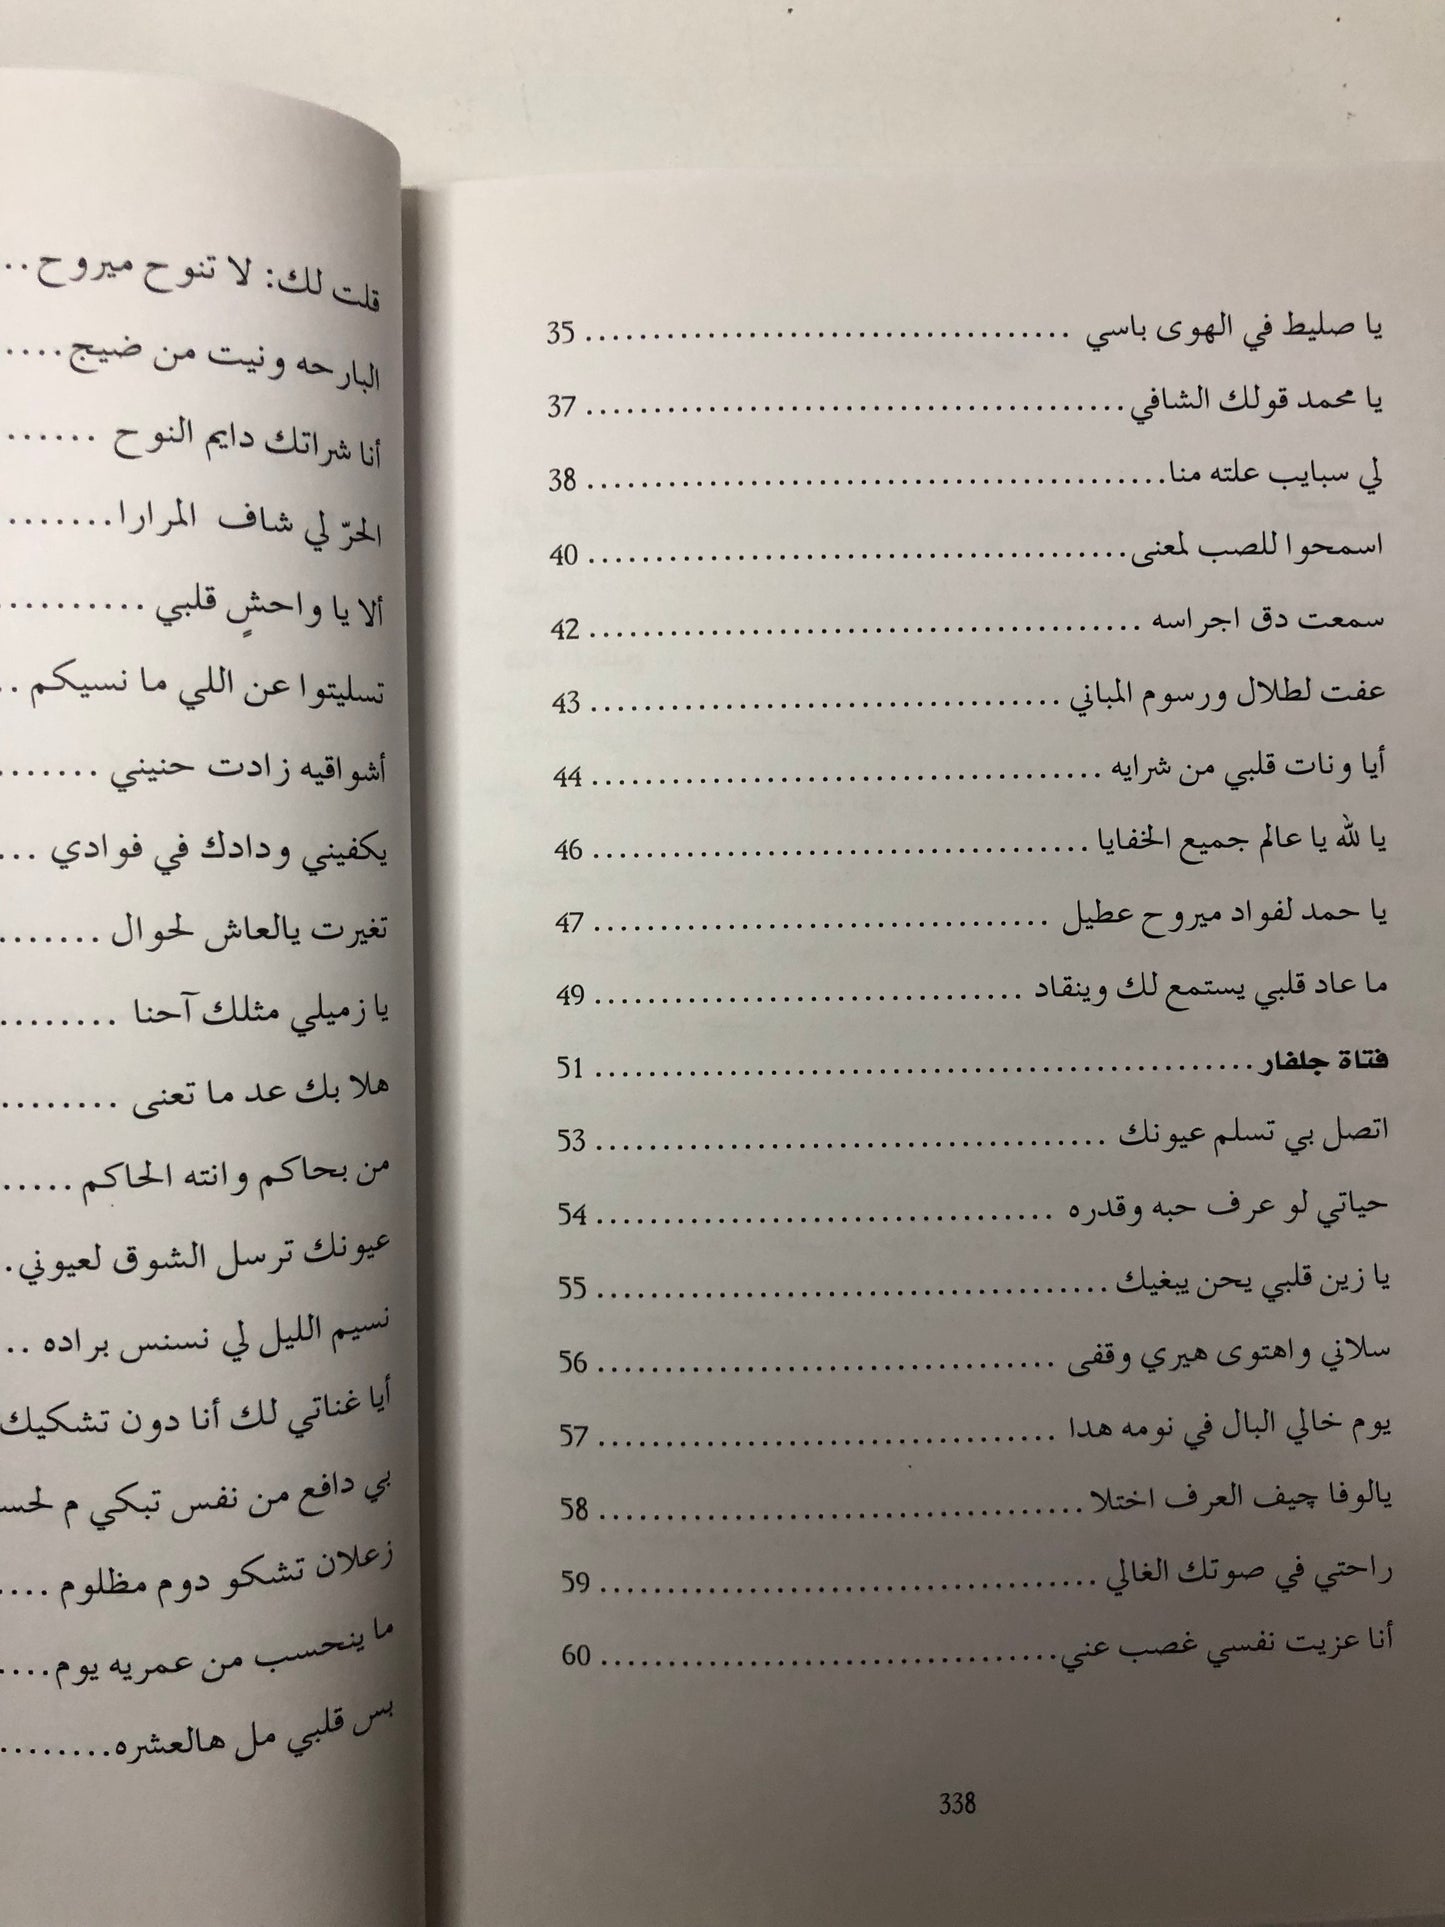 يا صليط في الهوى باسي ........................................ 35
يا محمد قولك الشافي ........................................ 37
لي سبايب علته منا ........................................ 38
اسمحوا للصب لمعنى ........................................ 40
سمعت دق اجراسه ........................................ 42
عفت لطلال ورسوم المباني ........................................ 43
أيا ونات قلبي من شرايه ........................................ 44
يا لله يا عالم جميع الخفايا ........................................ 46
يا حمد لفواد ميروح عطيل ........................................ 47
ما عاد قلبي يستمع لك وينقاد ........................................ 49
فتاة جلفار ........................................ 51
اتصل بي تسلم عيونك ........................................ 53
حياتي لو عرف حبه وقدره ........................................ 54
يا زين قلبي يحن يبغيك ........................................ 55
سلاني واهتوى هيري وقفى ........................................ 56
يوم خالي البال في نومه هدا ........................................ 57
يالوفا چيف العرف اختلا ........................................ 58
راحتي في صوتك الغالي ........................................ 59
أنا عزيت نفسي غصب عني ........................................ 60
338
قلت لك: لا تنوح ميروح ..
البارحه ونيت من ضيج ....
أنا شراتك دايم النوح ......
الحرّ لي شاف المرارا ........
ألا يا واحشٍ قلبي ..........
تسليتوا عن اللي ما نسيكم ..
أشواقيه زادت حنيني .......
يكفيني ودادك في فوادي ...
تغيرت يالعاش لحوال .......
يا زميلي مثلك آحنا ........
هلا بك عد ما تعنى ........
من بحاكم وانته الحاكم .....
عيونك ترسل الشوق لعيوني .
نسيم الليل لي نسنس براده ..
أيا غناتي لك أنا دون تشكيك
بي دافع من نفس تبكي م لحس
زعلان تشكو دوم مظلوم ....
ما ينحسب من عمريه يوم ....
بس قلبي مل هالعشره ........